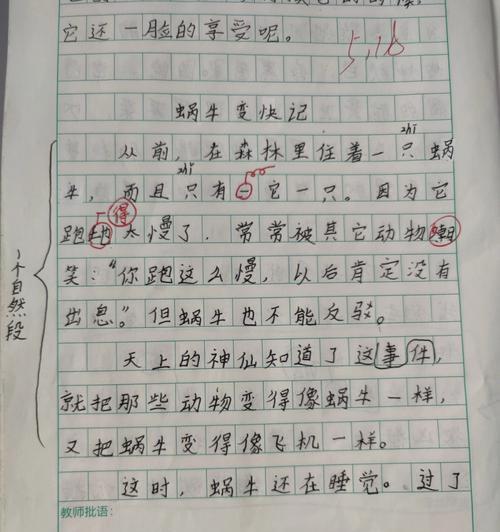 它还一脸的享受呢。
5,16
蜗牛变快记
zhī
从前，在森林里住着一只蜗
zhǐ
牛，而且只有它一只。因为它
得
跑地太慢了，常常被其它动物嘲
笑："你跑这么慢，以后肯定没有
出息。"但蜗牛也不能反驳。
天上的神仙知道了这事件，
就把那些动物变得像蜗牛一样，
又把蜗牛变得像飞机一样。
这时，蜗牛还在睡觉。过了
1个自然段
教师批语：